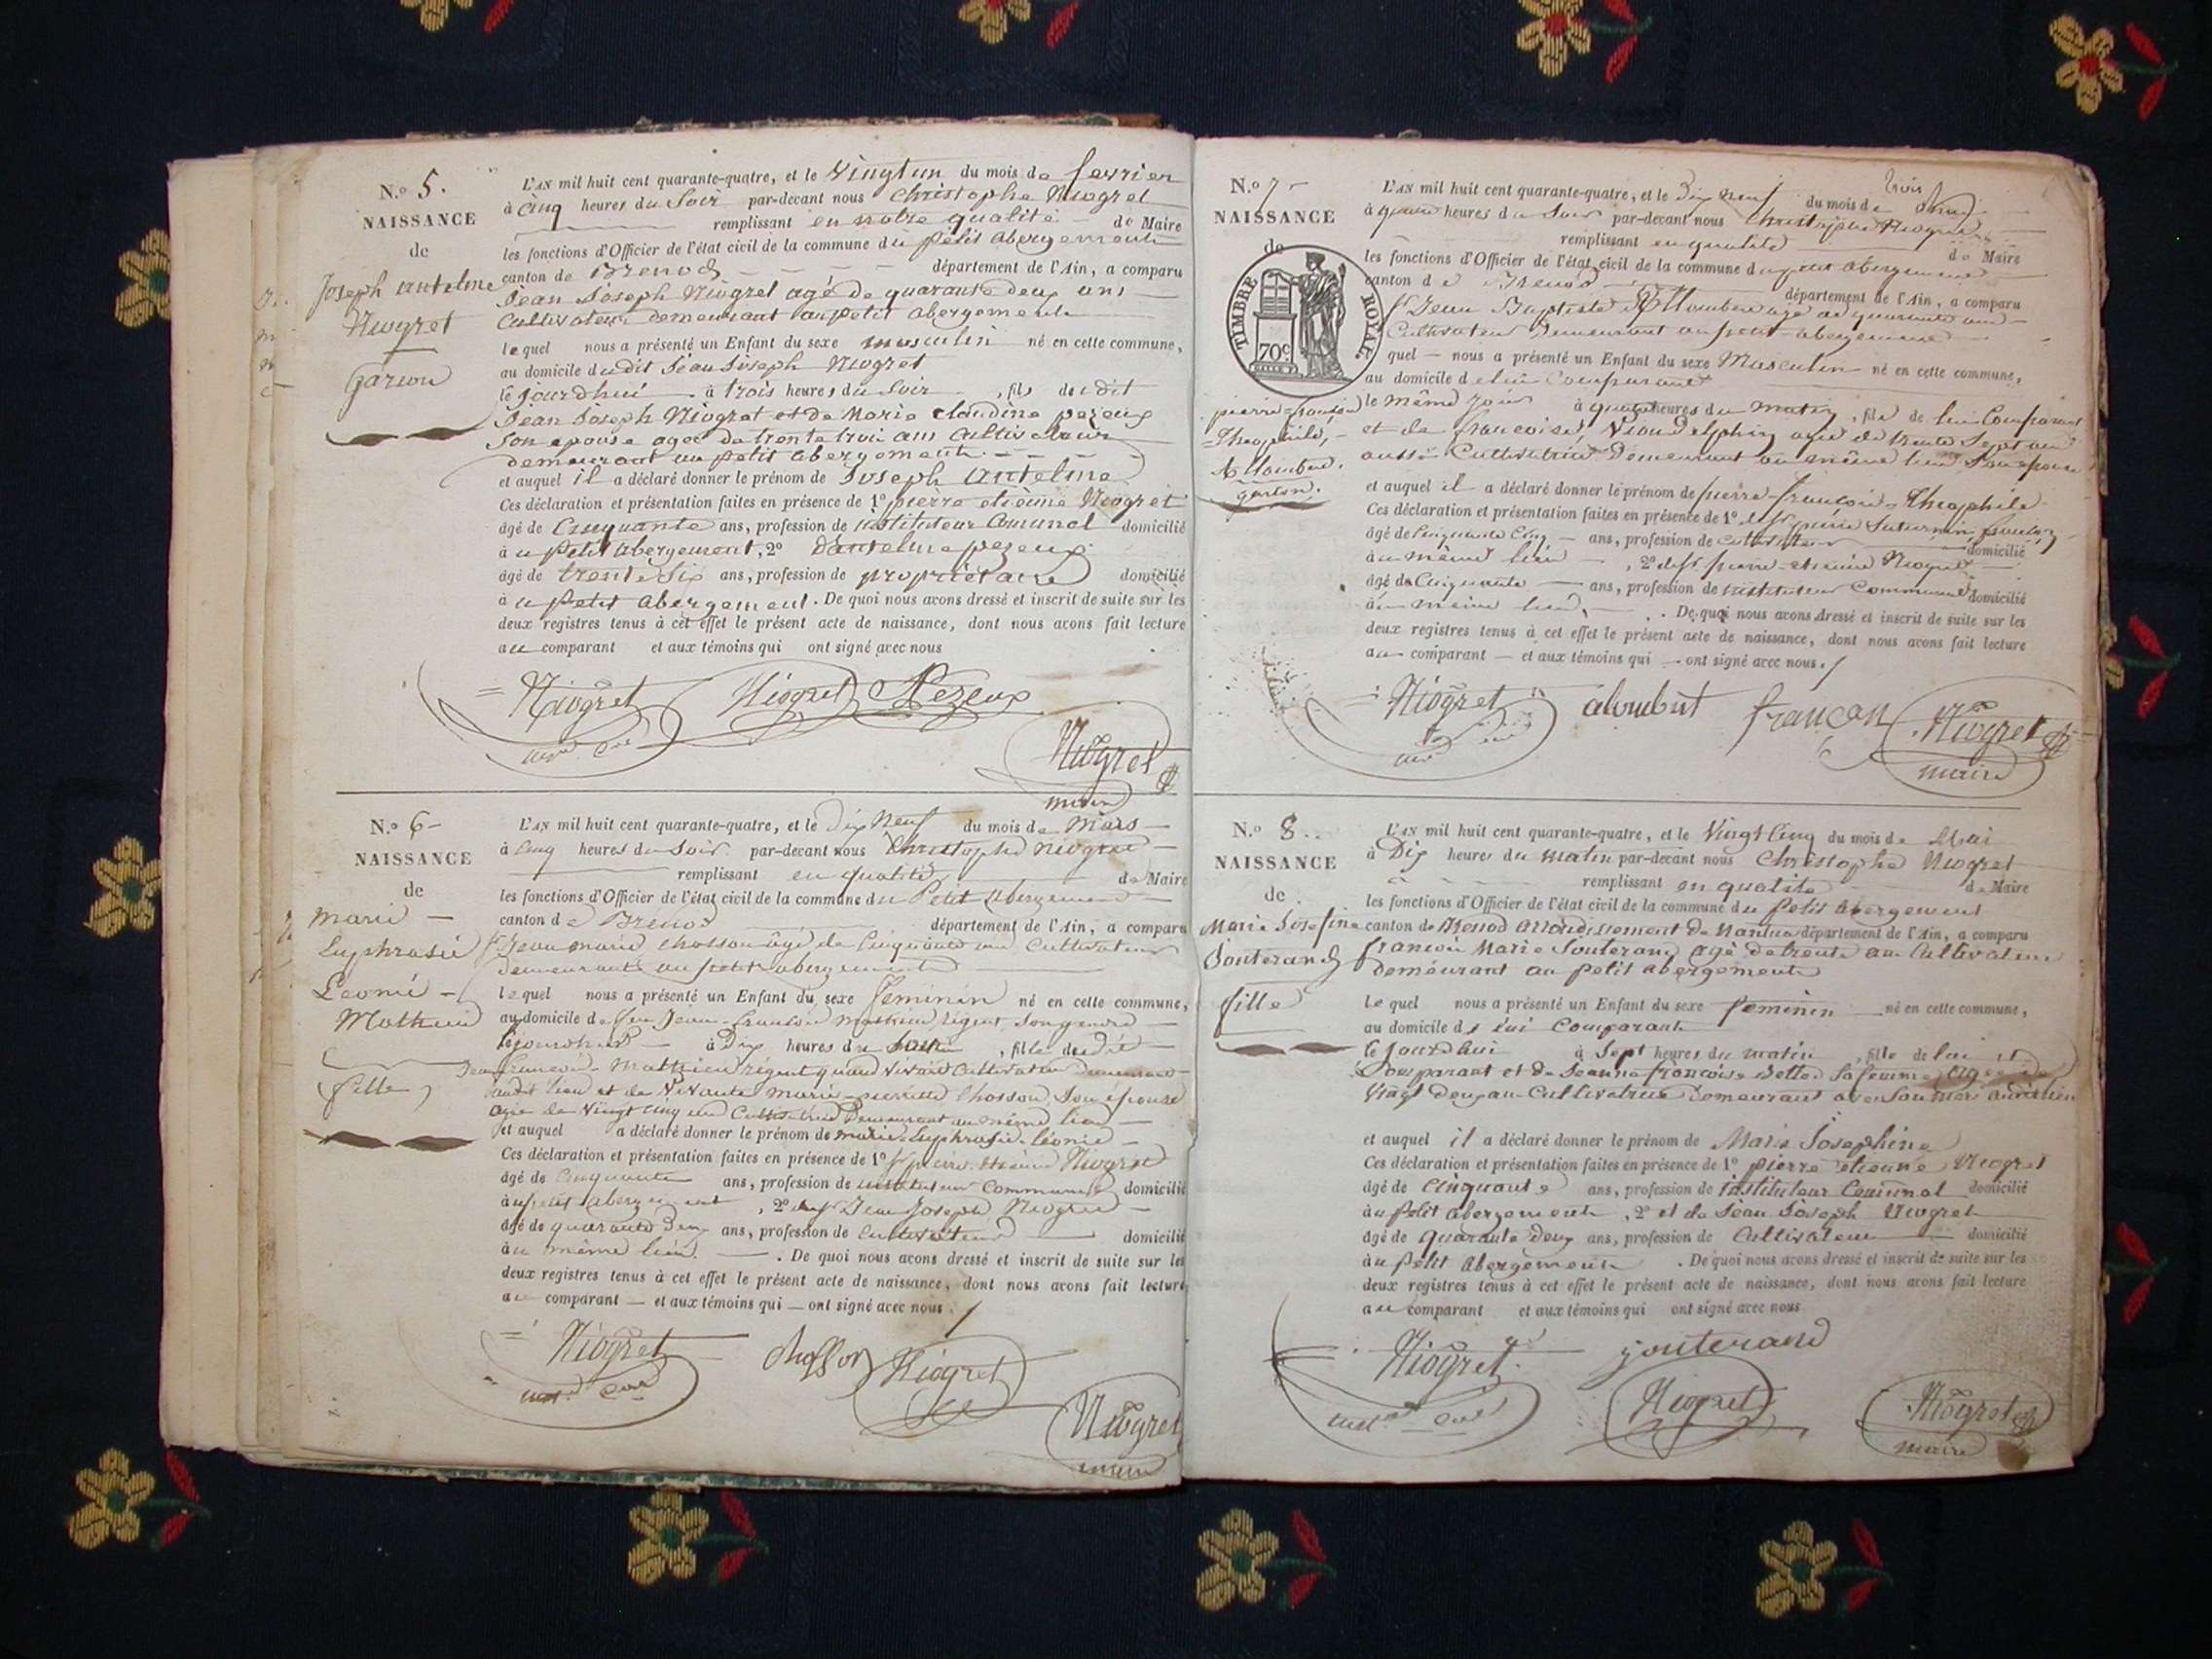 N.o 5.
NAISSANCE
de
Joseph antelme
Niogret
garçon
L'AN mil huit cent quarante-quatre, et le Vingt un du mois de fevrier
à Cinq heures du Soir par-devant nous Christophe Niogret
remplissant en notre qualité de Maire
les fonctions d'Officier de l'état civil de la commune du petit abergement
canton de Brenod département de l'Ain, a comparu
Jean Joseph Niogret agé de quarante deux ans
Cultivateur demeurant au petit abergement
lequel nous a présenté un Enfant du sexe masculin né en cette commune,
au domicile dudit Jean Joseph Niogret
le jourdhui à trois heures du Soir, fils dudit
Jean Joseph Niogret et de Marie Claudine pezeux
Son epouse agee de trente trois ans Cultivatrice
demeurant au petit abergement.
et auquel il a déclaré donner le prénom de Joseph Antelme
Ces déclaration et présentation faites en présence de 1o pierre etienne Niogret
âgé de Cinquante ans, profession de instituteur Comunal domicilié
à u petit abergement, 2o D'antelme pezeux
âgé de trente Six ans, profession de propriétaire domicilié
à u petit abergement. De quoi nous avons dressé et inscrit de suite sur les
deux registres tenus à cet effet le présent acte de naissance, dont nous avons fait lecture
au comparant et aux témoins qui ont signé avec nous
Niogret Niogret Pezeux
Niogret
maire
N.o 6
NAISSANCE
de
marie
Euphrasie
Leonie
Mathieu
fille
L'AN mil huit cent quarante-quatre, et le Dix Neuf du mois de Mars
à Cinq heures du Soir par-devant nous Christophe Niogret
remplissant en qualité de Maire
les fonctions d'Officier de l'état civil de la commune du Petit Abergement
canton de Brenod département de l'Ain, a comparu
Sr Jean marie Chosson âgé de Cinquante un Cultivateur
demeurant au petit abergement
lequel nous a présenté un Enfant du sexe feminin né en cette commune,
au domicile de feu Jean-françois Mathieu régent Son gendre
le jourdhui à Dix heures du, fille dudit
Jean françois Mathieu régent quand vivait Cultivateur
audit lieu et de Vivante Marie Chosson Son épouse
agée de Vingt Cinq ans Cultivatrice Demeurant au même lieu
et auquel a déclaré donner le prénom de marie Euphrasie Léonie
Ces déclaration et présentation faites en présence de 1o Sr pierre étiene Niogret
âgé de Cinquante ans, profession de instituteur Communal domicilié
à u petit abergement, 2o du Sr Jean Joseph Niogret
âgé de quarante Deux ans, profession de Cultivateur domicilié
à u même lieu. De quoi nous avons dressé et inscrit de suite sur les
deux registres tenus à cet effet le présent acte de naissance, dont nous avons fait lecture
au comparant et aux témoins qui ont signé avec nous.
Niogret Chosson Niogret
Niogret
maire
N.o 7
NAISSANCE
de
TIMBRE ROYAL
70c
pierre françois
Theophile,
Alombert.
garçon.
L'AN mil huit cent quarante-quatre, et le Dix Neuf du mois de
trois
à quatre heures du Soir par-devant nous Christophe Niogret
remplissant en qualité de Maire
les fonctions d'Officier de l'état civil de la commune du petit abergement
canton de Brenod département de l'Ain, a comparu
Sr Jean Baptiste Allombert agé de quarante ans
Cultivateur Demeurant au petit abergement
quel nous a présenté un Enfant du sexe Masculin né en cette commune,
au domicile de lui Comparant
le même jour à quatre heures du matin, fils de lui Comparant
et de françoise agée de trente Sept ans
aussi Cultivatrice Demeurant au même lieu Son épouse
et auquel il a déclaré donner le prénom de pierre-francois-Theophile
Ces déclaration et présentation faites en présence de 1o du Sr pierre Saturnin françon
âgé de Cinquante Cinq ans, profession de Cultivateur domicilié
à u même lieu, 2o du Sr pierre-etienne Niogret
âgé de Cinquante ans, profession de instituteur Communal domicilié
à u même lieu. De quoi nous avons dressé et inscrit de suite sur les
deux registres tenus à cet effet le présent acte de naissance, dont nous avons fait lecture
au comparant et aux témoins qui ont signé avec nous.
Niogret alombert françon Niogret
maire
N.o 8
NAISSANCE
de
Marie Josefine
Jonterand
fille
L'AN mil huit cent quarante-quatre, et le Vingt Cinq du mois de Mai
à Dix heures du matin par-devant nous Christophe Niogret
remplissant en qualite de Maire
les fonctions d'Officier de l'état civil de la commune du petit abergement
canton de Brenod arrondissement de Nantua département de l'Ain, a comparu
francois Marie Jonterand agé de trente ans Cultivateur
demeurant au petit abergement
lequel nous a présenté un Enfant du sexe feminin né en cette commune,
au domicile de lui Comparant
le jourdhui à Sept heures du matin, fille de lui
Comparant et de Jeanne francoise Sa femme agee de
Vingt deux ans Cultivatrice demeurant avec Son mari audit lieu
et auquel il a déclaré donner le prénom de Marie Josephine
Ces déclaration et présentation faites en présence de 1o pierre etienne Niogret
âgé de Cinquante ans, profession de instituteur Communal domicilié
à u petit abergement, 2o et de Jean Joseph Niogret
âgé de quarante Deux ans, profession de Cultivateur domicilié
à u petit abergement. De quoi nous avons dressé et inscrit de suite sur les
deux registres tenus à cet effet le présent acte de naissance, dont nous avons fait lecture
au comparant et aux témoins qui ont signé avec nous
Niogret jonterand
Niogret Niogret
maire